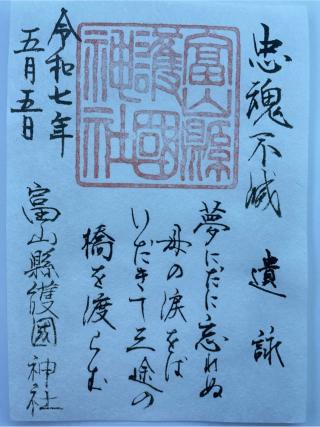 忠魂不滅 遺詠
夢にだに忘れぬ
母の涙をば
いだきて三途の
橋を渡らむ
富山縣護國神社
令和七年
五月五日
富山縣護國神社